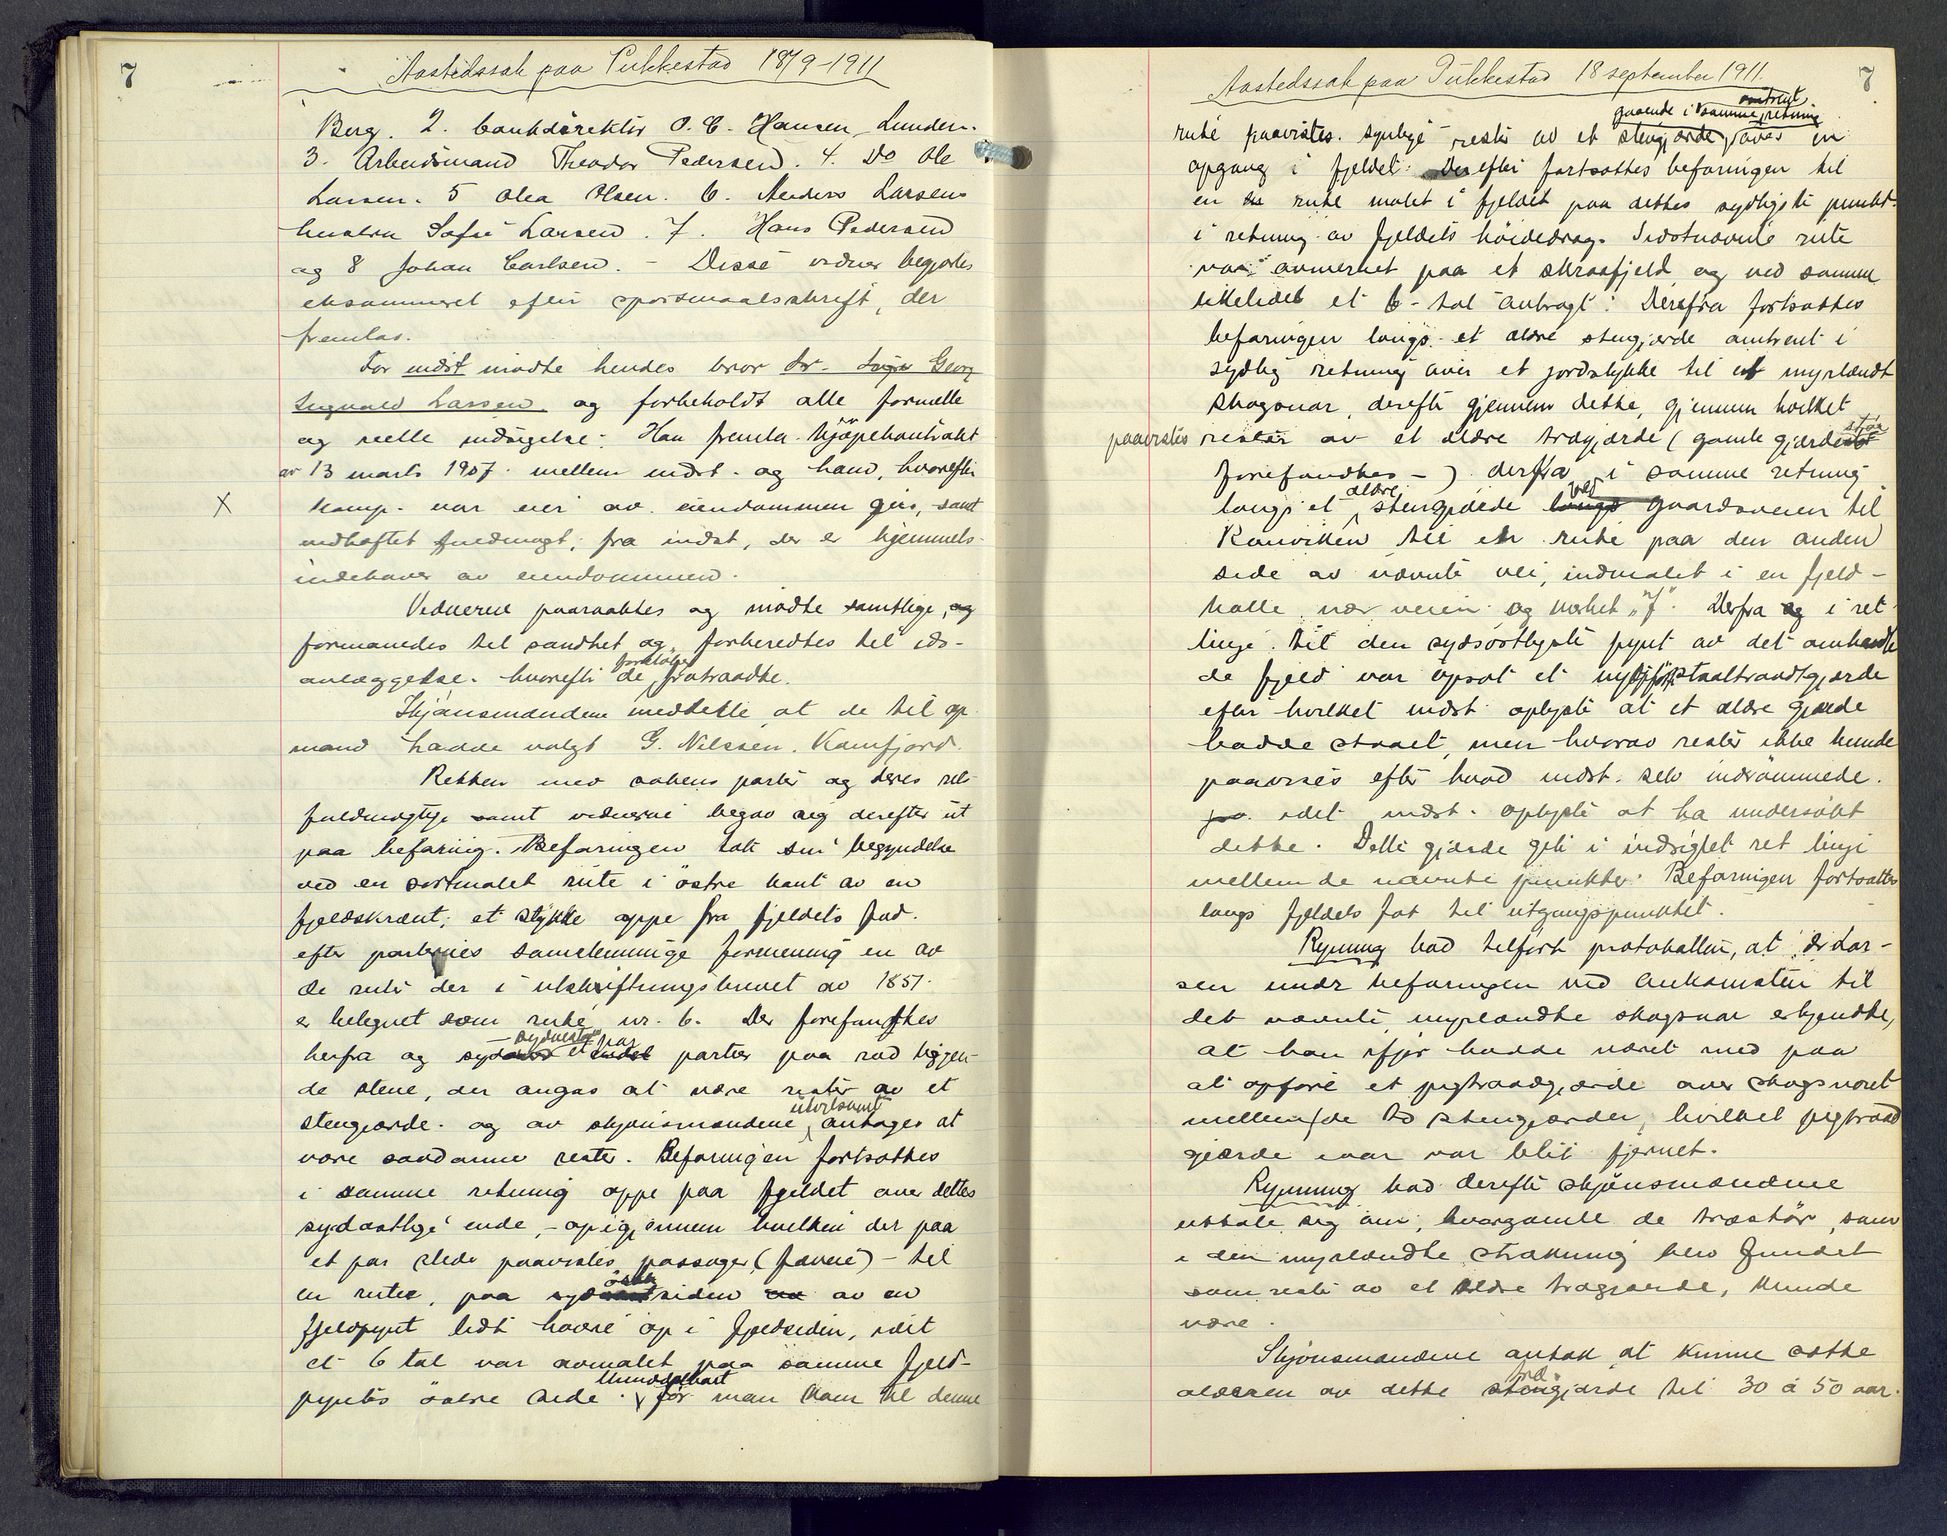 7
Aastedssak paa Pukkestad 18/9-1911
Berg. 2. bankdirektør O. C. Hansen, Lunden.
3. Arbeidsmand Theodor Pedersen. 4. Do Ole
Larsen. 5 Olea Olsen. 6. Anders Larsens
hustru Sofie Larsen. 7. Hans Pedersen
og 8 Johan Carlsen. - Disse vidner begjærtes
eksamineret efter spørsmaalsskrift, der
fremlas.
For indst møtte hendes bror dr. Sigv Georg
Sigvald Larsen og forbeholdt alle formelle
og reelle indsigelse. Han fremla kjøpekontrakt
av 13 marts 1907 mellem indst. og ham, hvorefter
komp. var eier av eiendommen gns, samt
vedhæftet fuldmagt, fra indst, der er hjemmels-
indehaver av eiendommen.
X
Vidnerne paaraaktes og møtte samtlige, og
formanedes til sandhet og forberedtes til eds-
avlæggelse. hvorefter de foreløbig fratraadte.
Skjønsmændene meddelte at de til op-
mand hadde valgt G. Nilssen, Kamfjord.
Retten med sakens parter og deres ret-
fuldmægtige samt vidnerne begav sig derefter ut
paa befaring. Befaringen tok sin begyndelse
ved en sortmalet rute i østre kant av en
fjeldskrænt, et stykke oppe fra fjeldets fod.
efter parternes samstemmige formening en av
de ruter der i utskiftningsbrevet av 1857
er betegnet som rute nr. 6. Der forefandtes
herfra og - sydvestover et par partier paa rad liggen-
de stene, der angaes at være rester av et
stengjærde. og av skjønsmændene utvilsomt antages at
være saadanne rester. Befaringen fortsattes
i samme retning oppe paa fjeldet over dettes
sydøstlige ende, - opigjennem hvilken der paa
et par steder paavistes passager (farene) - til
en rute, paa østsiden av en
fjeldpynt lidt høiere op i fjeldsiden, idet
et 6 tal var avmalet paa samme fjeld-
pynts østre side. Umiddelbart før man kom til denne
7
Aastedssak paa Pukkestad 18 september 1911.
rute paavistes synlige rester av et stengjærde, gaaende i omtrent samme retning over en
opgang i fjeldet. Derefter fortsattes befaringen til
en rute malet i fjeldet paa dettes sydligste punkt
i retning av fjeldets høidedrag. Sidstnævnte rute
var avmerket paa et skraafjeld og ved samme
likeledes et 6-tal anbragt. Derefra fortsattes
befaringen langs et ældre stengjærde omtrent i
sydlig retning over et jordstykke til et myrlændt
skogsnar, derefter gjennem dette, gjennem hvilket
paavistes rester av et ældre trægjærde (gamle gjærdestør
forefandtes -) derfra i samme retning
langs et ældre stengjærde ved gaardsveien til
Kamvikken til en rute paa den anden
side av nævnte vei, indmalet i en fjeld-
kolle nær veien og merket "7". Derfra og i ret
linje til den sydsostligste pynt av det omhandle-
de fjeld var opsat et nyt staaltraadgjærde
efter hvilket indst. oplyste at et ældre gjærde
hadde staaet, men hvorav rester ikke kunde
paavises efter hvad indst. selv indrømmede.
idet indst. oplyste at ha undersøkt
dette. Dette gjærde gik i indsigtet ret linje
mellem de nævnte punkter. Befaringen fortsattes
langs fjeldets fot til utgangspunktet.
Rynning bad tilført protokollen, at dr Lar-
sen under befaringen ved ankomsten til
det nævnte myrlændte skogsnar erkjendte,
at han ifjor hadde været med paa
at opføre et pigtraadgjærde over skogsnaret
mellem de to stengjærder, hvilket pigtraad-
gjærde iaar var blit fjernet.
Rynning bad derefter skjønsmændene
uttale sig om, hvorgamle de træstør, som
i den myrlændte strækning blev fundet
som rester av et ældre trægjærde, kunde
være.
Skjønsmændene antok at kunne sætte
alderen av dette trægjærde til 30 á 50 aar.